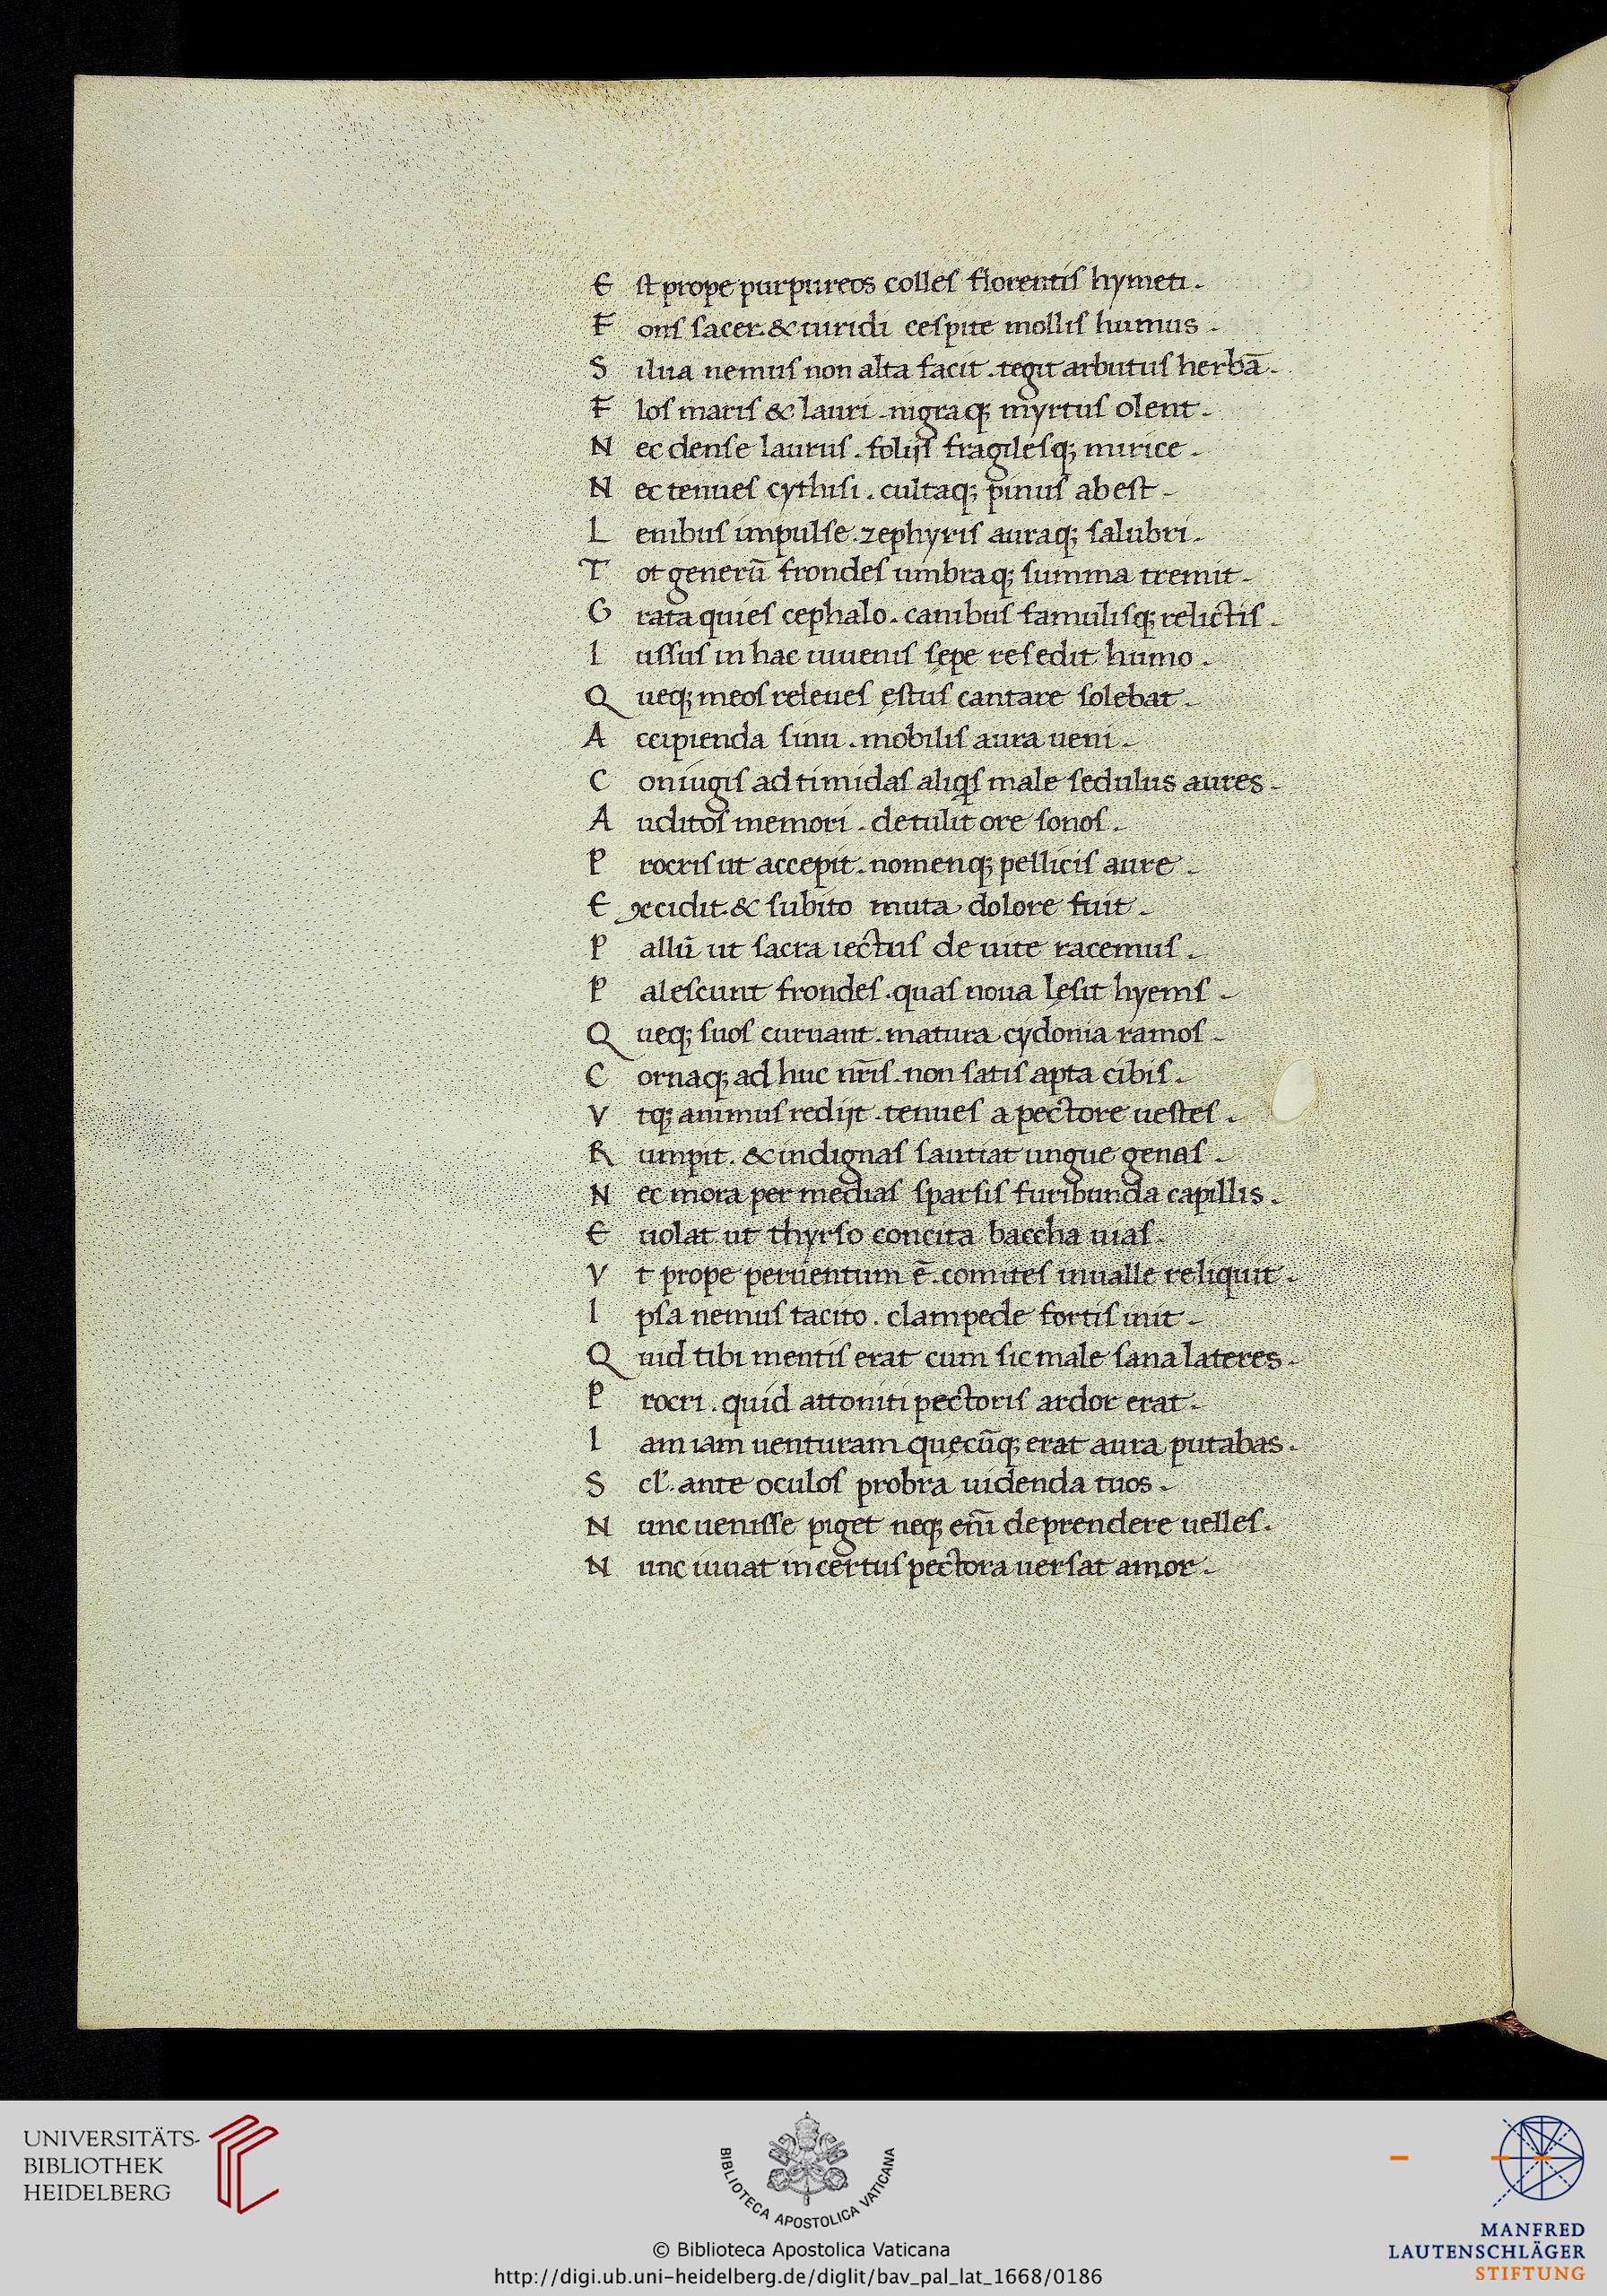 E ſt prope purpureos colleſ florentiſ hymeti.
F onſ ſacer.& uiridi ceſpite molliſ humus.
S ilua nemuſ non alta facit.tegit arbutuſ herbā.
F loſ mariſ & lauri.nigraq; myrtuſ olent.
N ec denſe lauruſ.foliiſ fragileſq; mirice.
N ec tenueſ cythiſi.cultaq; pinuſ abeſt.
L enibuſ impulſe.zephyriſ auraq; ſalubri.
T ot generū frondeſ umbraq; ſumma tremit.
G rata quieſ cephalo.canibuſ famuliſq; relictiſ.
I uſſuſ in hac iuueniſ ſępe reſedit humo.
Q ueq; meoſ releueſ ęſtuſ cantare ſolebat.
A ccipienda ſinu.mobiliſ aura ueni.
C oniugiſ ad timidaſ aliq̄ſ male ſedulus aures.
A uditoſ memori.detulit ore ſonoſ.
P rocriſ ut accepit.nomenq; pelliciſ aure.
E xcidit.& ſubito muta dolore fuit.
P allū ut ſacra iectuſ de uite racemuſ.
P aleſcunt frondeſ.quaſ noua lęſit hyemſ.
Q ueq; ſuoſ curuant.matura cydonia ramoſ.
C ornaq; ad huc nr̄iſ.non ſatiſ apta cibiſ.
V tq; animuſ rediit.tenueſ a pectore ueſteſ.
R umpit.& indignaſ ſautiat ungue genaſ.
N ec mora per mediaſ ſparſiſ furibunda capillis.
E uolat ut thyrſo concita baccha uiaſ.
V t prope peruentum ē.comiteſ inualle reliquit.
I pſa nemuſ tacito.clampede fortiſ init.
Q uid tibi mentiſ erat cum ſic male ſana lateres.
P rocri.quid attoniti pectoriſ ardor erat.
I am iam uenturam quęcūq; erat aura putabas.
S cł.ante oculoſ probra uidenda tuos.
N unc ueniſſe piget neq; enī deprendere uelleſ.
N unc iuuat incertuſ pectora uerſat amor.
UNIVERSITÄTS-
BIBLIOTHEK
HEIDELBERG
BIBLIOTECA APOSTOLICA VATICANA
© Biblioteca Apostolica Vaticana
http://digi.ub.uni-heidelberg.de/diglit/bav_pal_lat_1668/0186
MANFRED
LAUTENSCHLÄGER
STIFTUNG